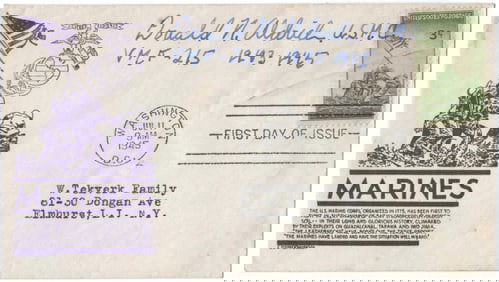 Donald N. Aldrich, U.S.M.C.
V.M.F.-215 1943-1945
UNITED STATES POSTAGE
3¢
WASHINGTON
JUL 11
9 AM
1945
D.C.
FIRST DAY OF ISSUE
W. Tekverk Family
81-30 Dongan Ave
Elmhurst L.I. N.Y.
MARINES
THE U.S. MARINE CORPS, ORGANIZED IN 1775, HAS BEEN FIRST TO
SOIL — IN THEIR LONG AND GLORIOUS HISTORY, CLIMAXED
BY THEIR EXPLOITS ON GUADALCANAL, TARAWA AND IWO JIMA,
THE MARINES HAVE LANDED AND HAVE THE SITUATION WELL IN HAND